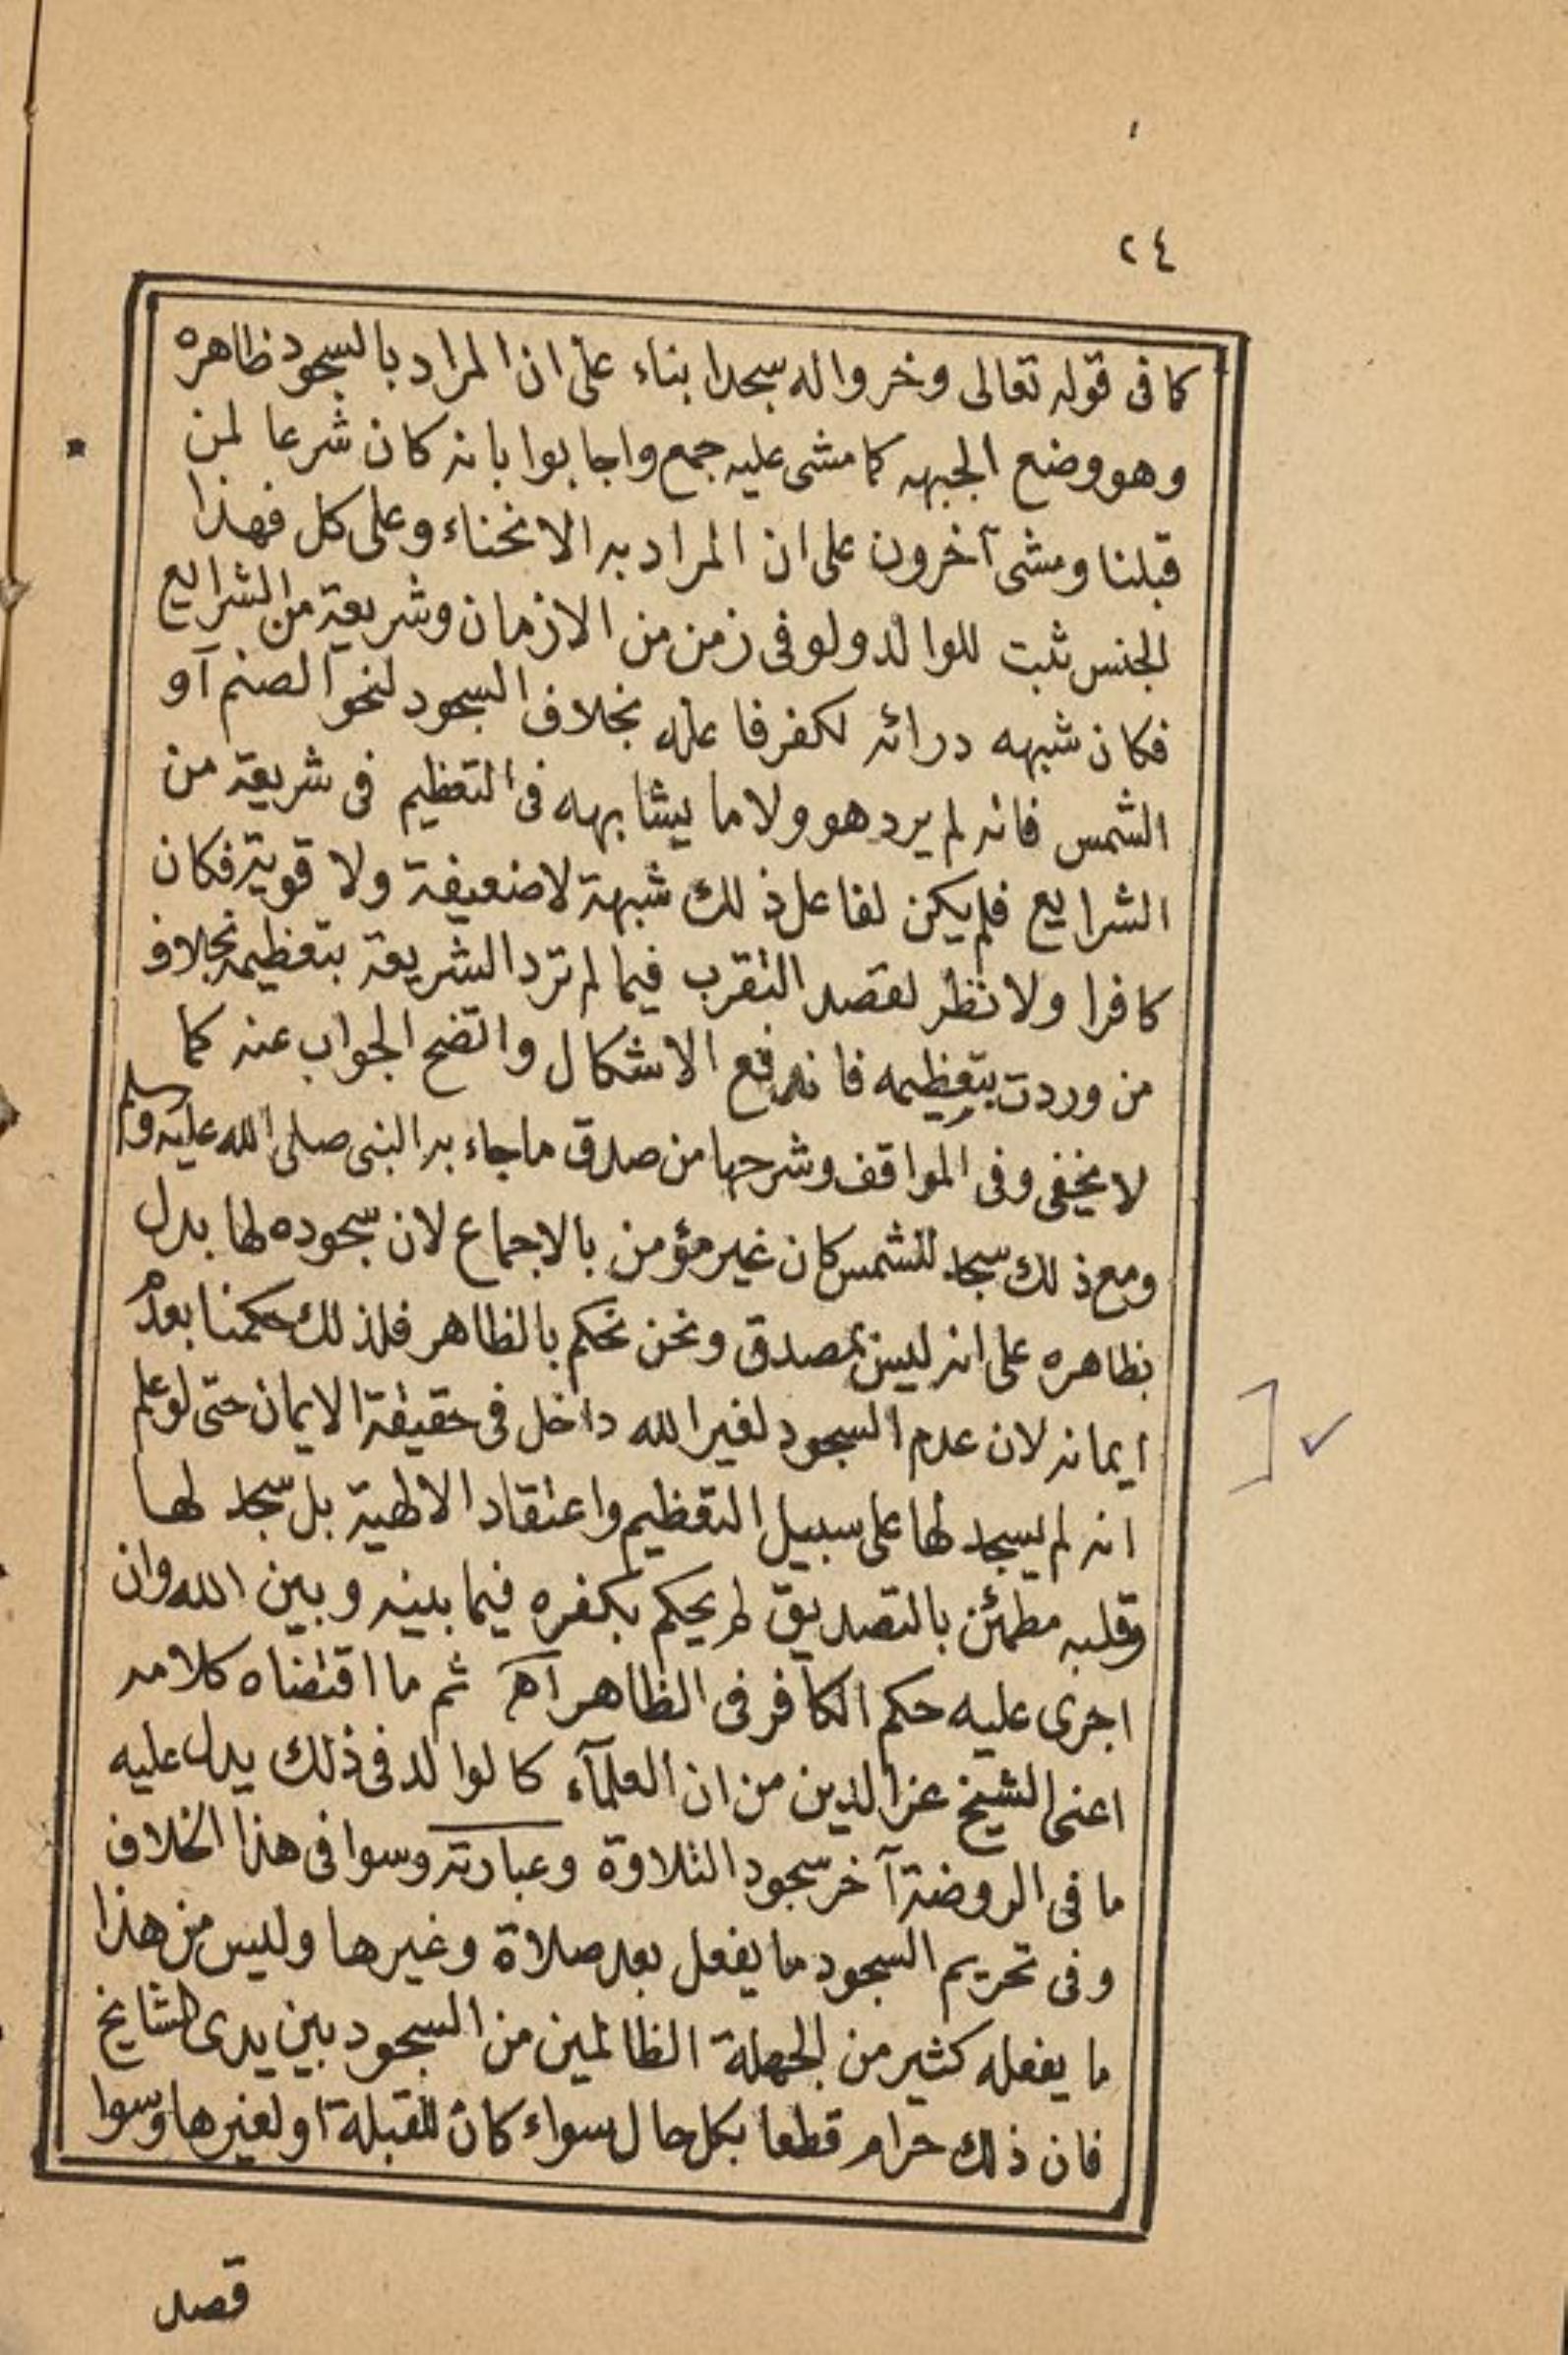 ٢٤
كما فى قوله تعالى وخروا له سجدا بناء على ان المراد بالسجود ظاهره
وهو وضع الجبهه كما مشى عليه جمع واجابوا بانه كان شرعا لمن
قبلنا ومشى آخرون على ان المراد به الانحناء وعلى كل فهذا
الجنس ثبت للوالد ولو فى زمن من الازمان وشريعة من الشرايع
فكان شبهه درائه لكفر فاعله بخلاف السجود لنحو الصنم آو
الشمس فانه لم يرد هو ولا ما يشابهه فى التعظيم فى شريعة من
الشرايع فلم يكن لفاعل ذلك شبهة لا ضعيفة ولا قوية فكان
كافرا ولا نظر لقصد التقرب فيما لم ترد الشريعة بتعظيمه بخلاف
من وردت بتعظيمه فاندفع الاشكال واتضح الجواب عنه كما
لا يخفى وفى المواقف وشرحها من صدق ما جاء به النبى صلى الله عليه وسلم
ومع ذلك سجد للشمس كان غير مؤمن بالاجماع لان سجوده لها يدل
بظاهره على انه ليس بمصدق ونحن نحكم بالظاهر فلذلك حكمنا بعدم
ايمانه لان عدم السجود لغير الله داخل فى حقيقة الايمان حتى لو علم
انه لم يسجد لها على سبيل التعظيم واعتقاد الالهية بل سجد لها
وقلبه مطمئن بالتصديق لم يحكم بكفره فيما بينه وبين الله وان
اجرى عليه حكم الكافر فى الظاهر اه ثم ما اقتضاه كلامه
اعنى الشيخ عز الدين من ان العلمآء كالوالد فى ذلك يدل عليه
ما فى الروضة آخر سجود التلاوة وعبارته وسوا فى هذا الخلاف
وفى تحريم السجود ما يفعل بعد صلاة وغيرها وليس من هذا
ما يفعله كثير من الجهلة الظالمين من السجود بين يدى المشايخ
فان ذلك حرام قطعا بكل حال سواء كان للقبلة او لغيرها وسوا
قصد